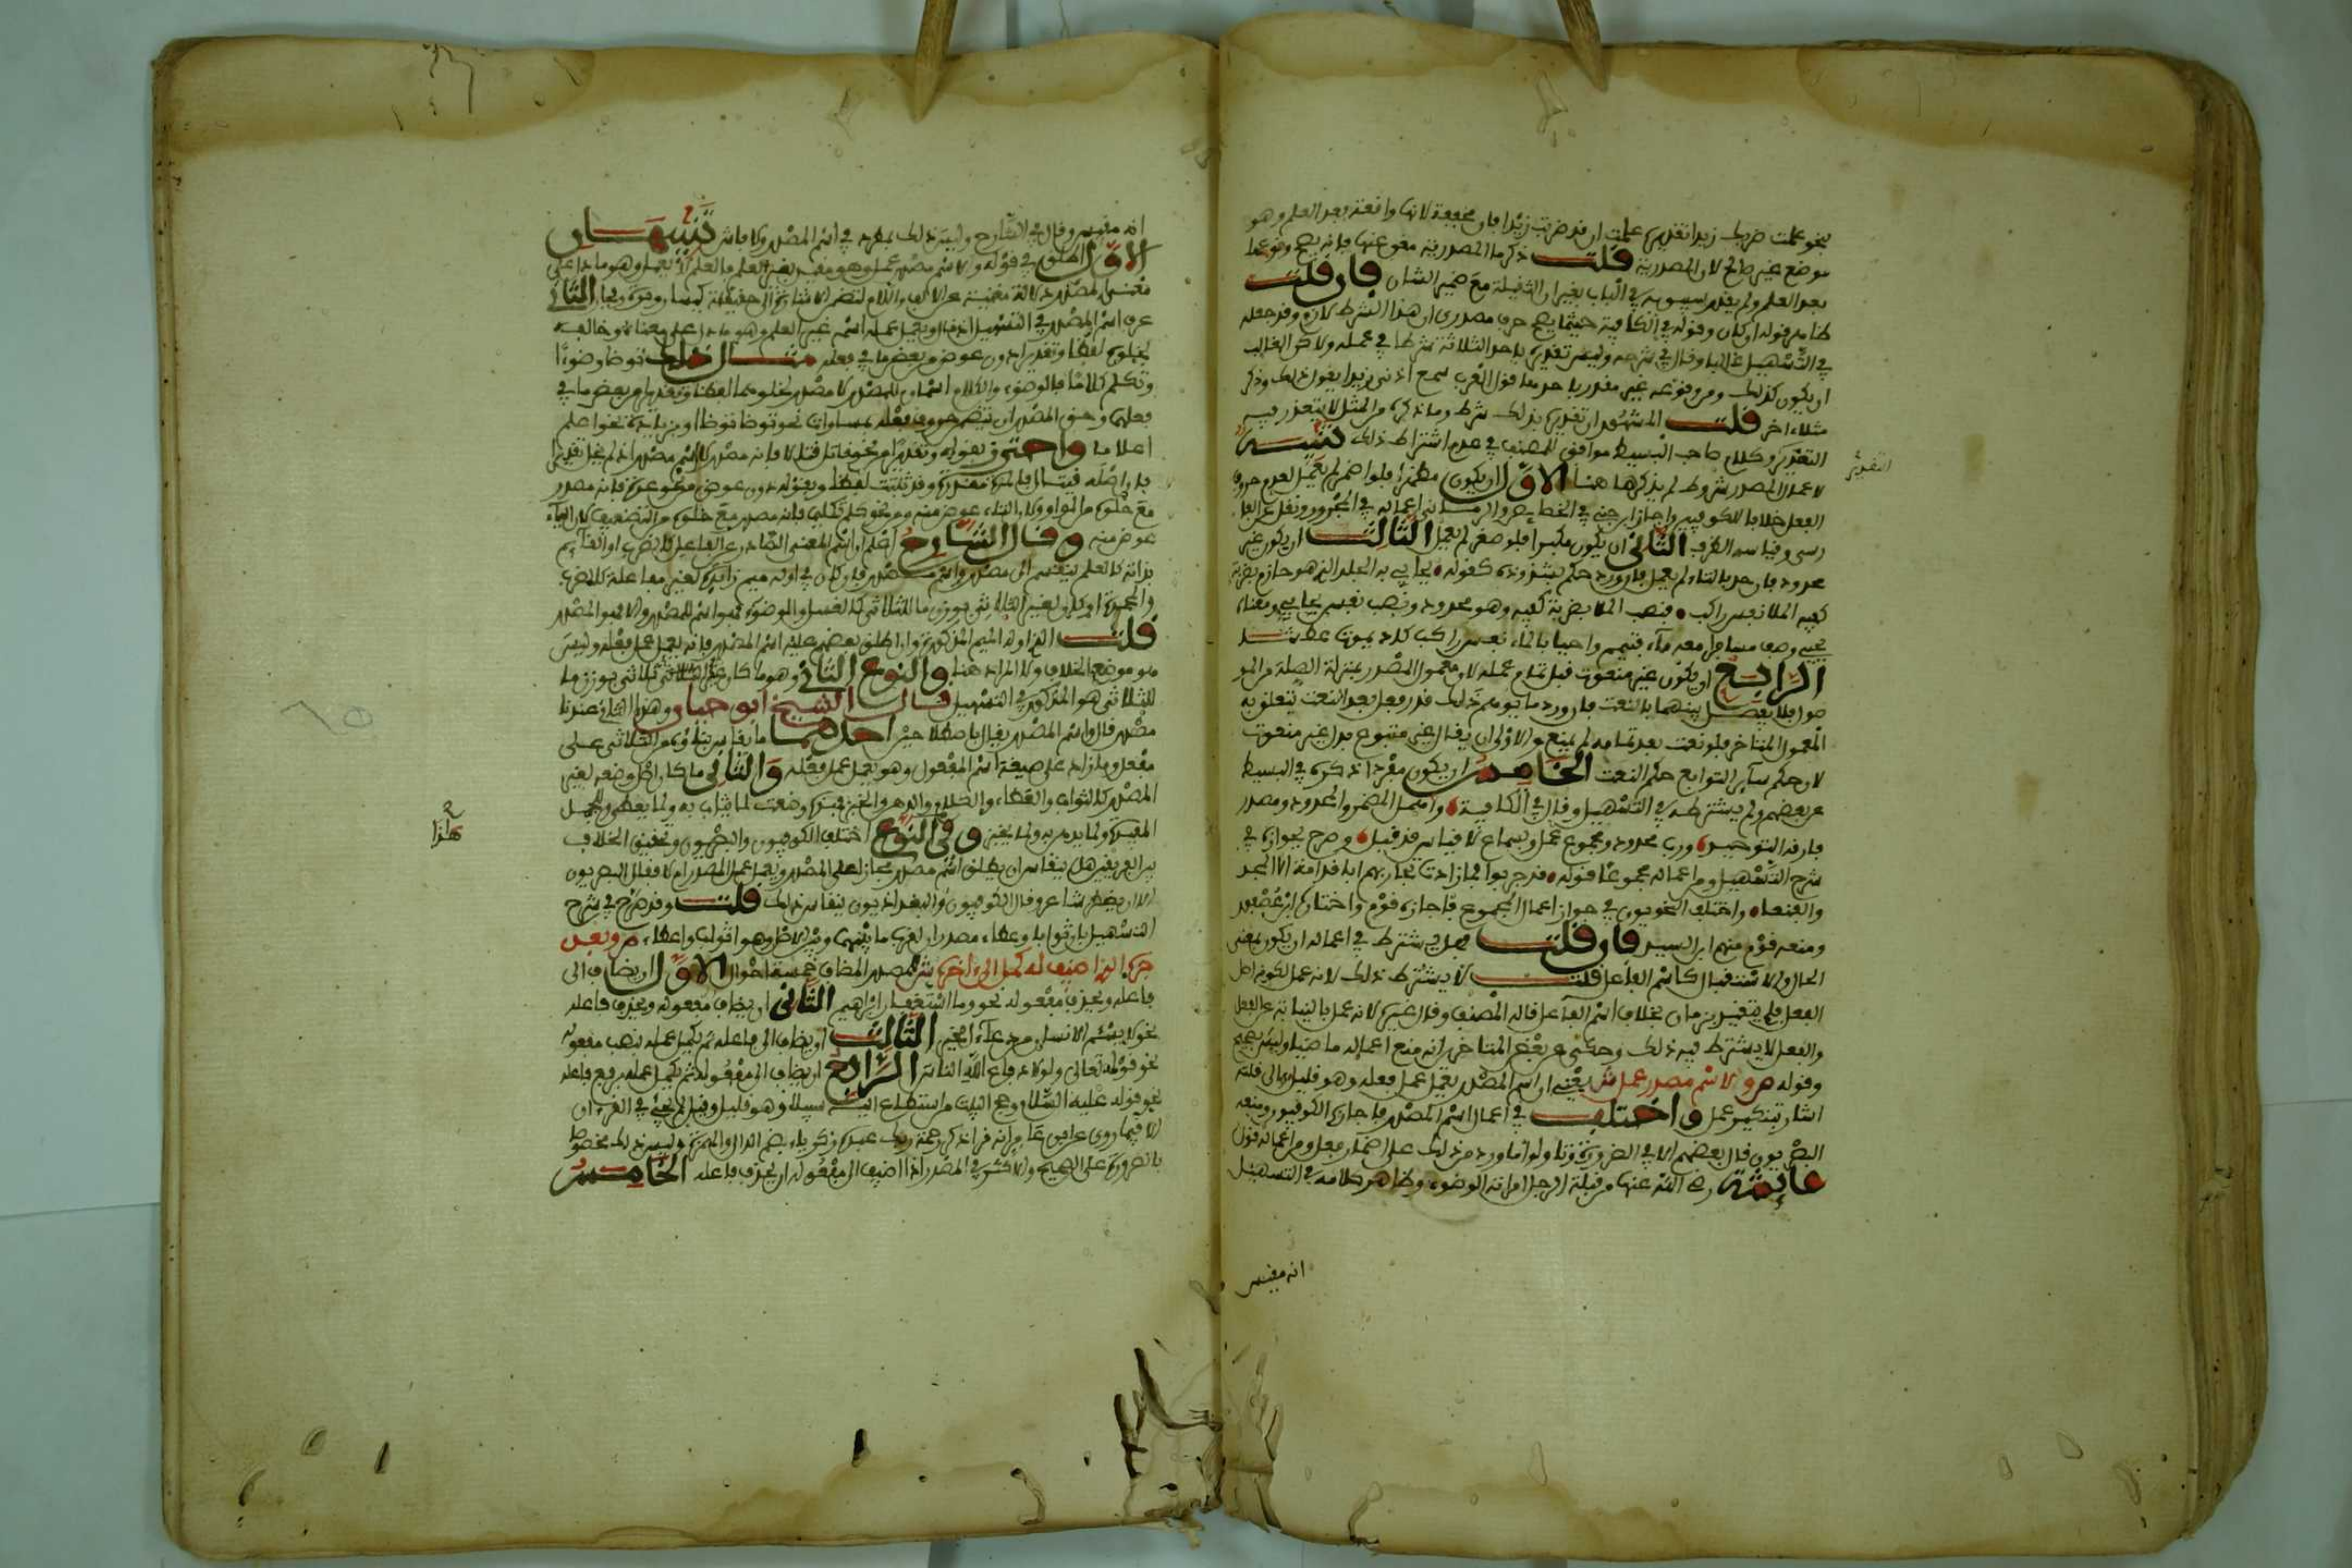 نحو علمت ضربك زيدا تقديره علمت ان قد ضربت زيدا فان مخففة لانها واقعة بعد العلم وهو
موضع غير صالح لان المصدرية قلت ذكر ما المصدرية مغن عنها فإنه يصح وقوعها
بعد العلم ولم يقدر سيبويه في الباب بغير ان الثقيلة مع ضمير الشان فان قلت
ظاهر قوله ان كان وقوله في الكافية حيثما يصح حرف مصدري ان هذا الشرط لازم وقد جعله
في التسهيل غالبا وقال في شرحه وليس تقديره باحد الثلاثة شرطا في عمله ولاكن الغالب
ان يكون كذلك ومن وقوعه غير مقدر باحدها قول العرب سمع اذني زيدا يقول ذلك وذكر
مثلا اخر قلت المشهور ان تقديره بذلك شرط وما ذكره من المثل لا يتعذر فيه
التقدير وكلام صاحب البسيط موافق للمصنف في عدم اشتراط ذلك تنبيه
لاعمال المصدر شروط لم يذكرها هنا الاول ان يكون مظهرا فلو اضمر لم يعمل لعدم حروف
الفعل خلافا للكوفيين واجاز ابن جني في الخصايص والرماني اعماله في المجرور ونقل عن الفا
رسي وقياسه الظرف الثاني ان يكون مكبرا فلو صغر لم يعمل الثالث ان يكون غير
محدود فان حد بالتاء لم يعمل فان ورد حكم بشذوذه كقوله يحايي به الجلد الذي هو حازم بضربة
كفيه الملا نفس راكب فنصب الملا بضربة كفيه وهو محدود ونصب نفس بيحايي ومعناه
يحيي وصف مسافرا معه ماء فتيمم واحيا بالماء نفس راكب كاد يموت عطشا
الرابع ان يكون غير منعوت قبل تمام عمله لان معمول المصدر بمنزلة الصلة من المو
صول فلا يفصل بينهما بالنعت فان ورد ما يوهم ذلك قدر فعل بعد النعت يتعلق به
المعمول المتاخر فلو نعت بعد تمامه لم يمنع والاولى ان يقال غير متبوع بدل غير منعوت
لان حكم ساير التوابع حكم النعت الخامس ان يكون مفردا ذكره في البسيط
عن بعضهم ولم يشترطه في التسهيل وقال في الكافية واهمل المضمر والمحدود ومصدر
فارقه التوحيد ورب محدود ومجموع عمل وبسماع لا قياس قد قبل وصرح بجوازه في
شرح التسهيل ومن اعماله مجموعا قوله قد جربوه فما زادت تجاربهم ابا قدامة الا المجد
والفنعا واختلف النحويون في جواز اعمال المجموع فاجازه قوم واختاره ابن عصفور
ومنعه قوم منهم ابن السيد فان قلت فهل يشترط في اعماله ان يكون بمعنى
الحال والاستقبال كاسم الفاعل قلت لا يشترط ذلك لانه عمل لكونه اصل
الفعل فلم يتقيد بزمان بخلاف اسم الفاعل قاله المصنف وقال غيره لانه عمل بالنيابة عن الفعل
والفعل لا يشترط فيه ذلك وحكي عن بعض المتاخرين انه منع اعماله ماضيا وليس بصحيح
وقوله ص ولاسم مصدر عمل ش يعني ان اسم المصدر يعمل عمل فعله وهو قليل والى قلته
اشار بتنكير عمل واختلف في اعمال اسم المصدر فاجازه الكوفيون ومنعه
البصريون قال بعضهم الا في الضرورة وتاولوا ما ورد من ذلك على اضمار فعل ومن اعماله قول
عايشة رضي الله عنها من قبلة الرجل امراته الوضوء وظاهر كلامه في التسهيل
التقدير
انه مقيس
انه مقيس وقال في الشارح وليس ذلك بمطرد في اسم المصدر ولا فاش تنبيهان
الاول اطلق في قوله ولاسم مصدر عمل وهو مقيد بغير العلم فالعلم لا يعمل وهو ما دل على
معنى المصدر دلالة مغنية عن الالف واللام لتضمن الاشارة الى حقيقة كيسار وبرة وفجار الثاني
عرف اسم المصدر في التسهيل الذي يعمل عمله اسم غير العلم وهو ما دل على معناه وخالفه
بخلوه لفظا وتقديرا دون عوض من بعض ما في فعله مثال ذلك توضا وضوءا
وتكلم كلاما فالوضوء والكلام اسمان للمصدر لا مصدر لخلوهما لفظا وتقديرا من بعض ما في
فعلهما وحق المصدر ان يتضمن حروف فعله بمساواة نحو توضا توضؤا او بزيادة نحو اعلم
اعلاما واحترز بقوله وتقديرا من نحو قاتل قتالا فإنه مصدر لا اسم مصدر اذ لم يخل تقديرا
فان اصله قيتال فالمدة مقدرة وقد ثبتت لفظا وبقوله دون عوض من نحو عدة فإنه مصدر
مع خلوه من الواو لان التاء عوض منه ومن نحو كلم تكليما فإنه مصدر مع خلوه من التضعيف لان الياء
عوض منه وقال الشارح اعلم ان اسم المعنى الصادر عن الفاعل كالضرب او القائم
بذاته كالعلم ينقسم الى مصدر واسم مصدر فان كان في اوله ميم زايدة لغير مفاعلة كالمضرب
والمحمدة او كان لغير الثلاثي بوزن ما للثلاثي كالغسل والوضوء فهو اسم المصدر والا فهو المصدر
قلت الذي اوله الميم المذكورة وان اطلق بعضهم عليه اسم المصدر فإنه يعمل عمل فعله وليس
هو موضع الخلاف ولا المراد هنا والنوع الثاني وهو ما كان لغير الثلاثي بوزن ما
للثلاثي هو المذكور في التسهيل قال الشيخ ابو حيان وهذا الثاني عندنا
مصدر قال واسم المصدر يقال باصطلاحين احدهما ما يقاس بناؤه من الثلاثي على
مفعل وما زاد على صيغة اسم المفعول وهو يعمل عمل فعله والثاني ما كان اصل وضعه لغير
المصدر كالثواب والعطاء والكلام والدهن والخبز فهذه وضعت لما يثاب به ولما يعطى وللجمل
المفيدة ولما يدهن به ولما يخبز وفي النوع اختلف الكوفيون والبصريون وتحقيق الخلاف
بين الفريقين هل يقاس ان يطلق اسم مصدر مجازا على المصدر ويعمل عمل المصدر ام لا فقال البصريون
الا ان يضطر شاعر وقال الكوفيون والبغداديون يقاس ذلك قلت وقد صرح في شرح
التسهيل بان ثوابا وعطاء مصدران لقرب ما بينهما وبين الاصل وهو اثواب واعطاء ص وبعد
جره الذي اضيف له كمل الى اخره ش للمصدر المضاف خمسة احوال الاول ان يضاف الى
فاعله ويحذف مفعوله نحو وما استغفار ابراهيم الثاني ان يضاف لمفعوله ويحذف فاعله
نحو لا يسئم الانسان من دعاء الخير الثالث ان يضاف الى فاعله ثم يكمل عمله بنصب مفعوله
نحو قوله تعالى ولولا دفاع الله الناس الرابع ان يضاف الى مفعوله ثم يكمل عمله برفع فاعله
نحو قوله عليه السلام وحج البيت من استطاع اليه سبيلا وهو قليل وقيل لم يجئ في القرءان
الا فيما روي عن ابن عامر انه قرا ذكر رحمة ربك عبده زكرياء بضم الدال والهمزة وليس ذلك مخصوصا
بالضرورة على الصحيح والاكثر في المصدر اذا اضيف الى مفعوله ان يحذف فاعله الخامس
هاذا
٦٥